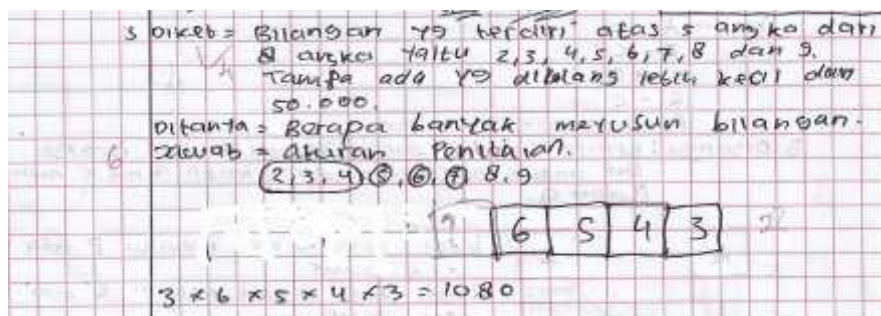 5 Diket = Bilangan yg terdiri atas 5 angka dari
8 angka yaitu 2, 3, 4, 5, 6, 7, 8 dan 9.
Tampa ada yg diulang lebih kecil dari
50.000.
Ditanya = Berapa banyak menyusun bilangan.
6 Jawab = Aturan
2, 3, 4, 5, 6, 7, 8, 9
6 5 4 3
3 x 6 x 5 x 4 x 3 = 1080